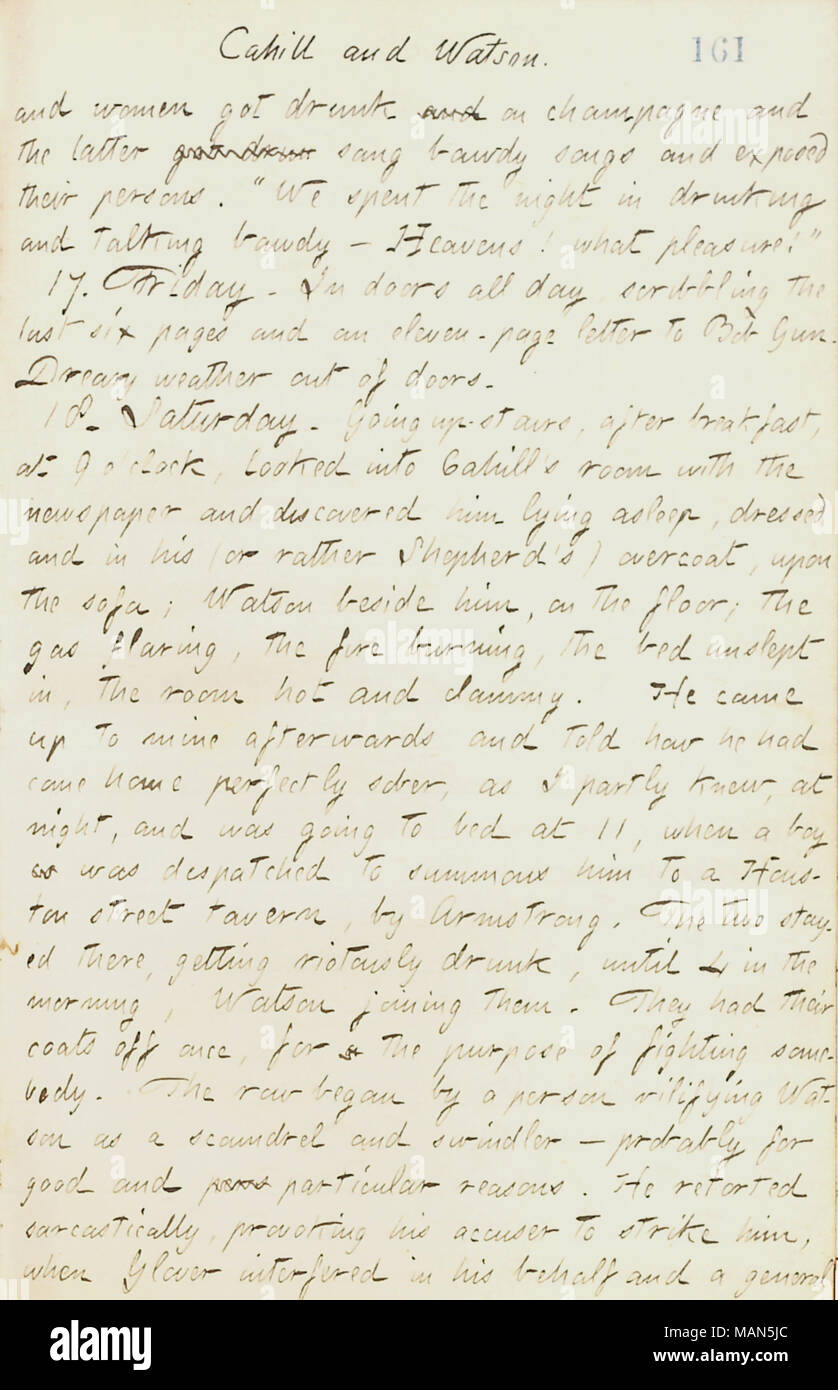 Cahill and Watson.
161
and women got drunk and on champagne and
the latter got drun sang bawdy songs and exposed
their persons. "We spent the night in drinking
and talking bawdy — Heavens! what pleasure!"
17. Friday. In doors all day, scribbling the
last six pages and an eleven-page letter to Bob Gun.
Dreary weather out of doors.
18. Saturday. Going up-stairs, after breakfast,
at 9 o'clock, looked into Cahill's room with the
newspaper and discovered him lying asleep, dressed
and in his (or rather Shepherd's) overcoat, upon
the sofa; Watson beside him, on the floor; the
gas flaring, the fire burning, the bed unslept
in, the room hot and clammy. He came
up to mine afterwards and told how he had
come home perfectly sober, as I partly knew, at
night, and was going to bed at 11, when a boy
was despatched to summons him to a Hous-
ton street tavern, by Armstrong. The two stay-
ed there, getting riotously drunk, until 4 in the
morning, Watson joining them. They had their
coats off once, for the purpose of fighting some-
body. The row began by a person vilifying Wat-
son as a scoundrel and swindler — probably for
good and pers particular reasons. He retorted
sarcastically, provoking his accuser to strike him,
when Glover interfered in his behalf and a general
alamy
Image ID: MAN5JC
www.alamy.com